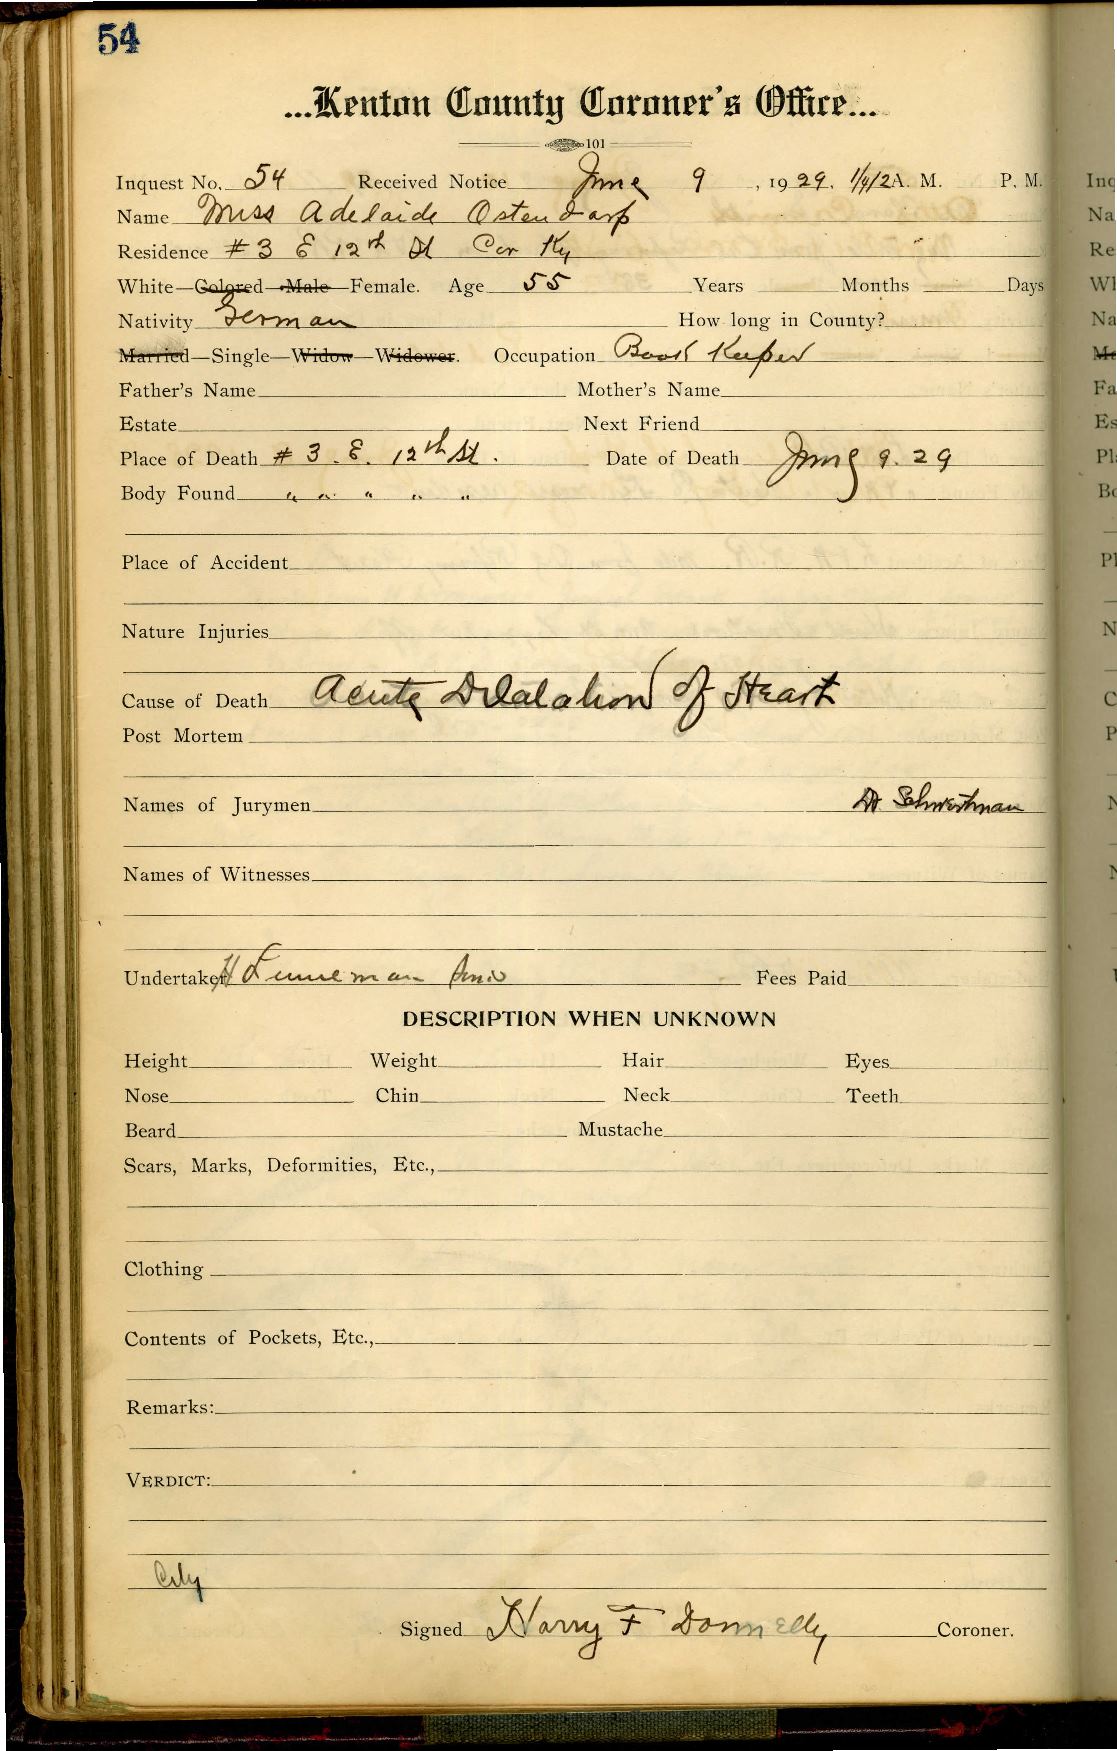 54
...Kenton County Coroner's Office...
101
Inquest No. 54 Received Notice June 9, 1929. A. M. P. M.
Name Miss Adelaide Ostendarp
Residence # 3 E 12th St Cov Ky
White—Colored—Male—Female. Age 55 Years Months Days
Nativity German How long in County?
Married—Single—Widow—Widower. Occupation Book Keeper
Father's Name Mother's Name
Estate Next Friend
Place of Death # 3. E. 12th St. Date of Death June 9. 29
Body Found " " " " "
Place of Accident
Nature Injuries
Cause of Death Acute Dilalation of Heart
Post Mortem
Names of Jurymen Dr Schwertman
Names of Witnesses
Undertaker H Linneman Sons Fees Paid
DESCRIPTION WHEN UNKNOWN
Height Weight Hair Eyes
Nose Chin Neck Teeth
Beard Mustache
Scars, Marks, Deformities, Etc.,
Clothing
Contents of Pockets, Etc.,
Remarks:
VERDICT:
City
Signed Harry F Donnelly Coroner.